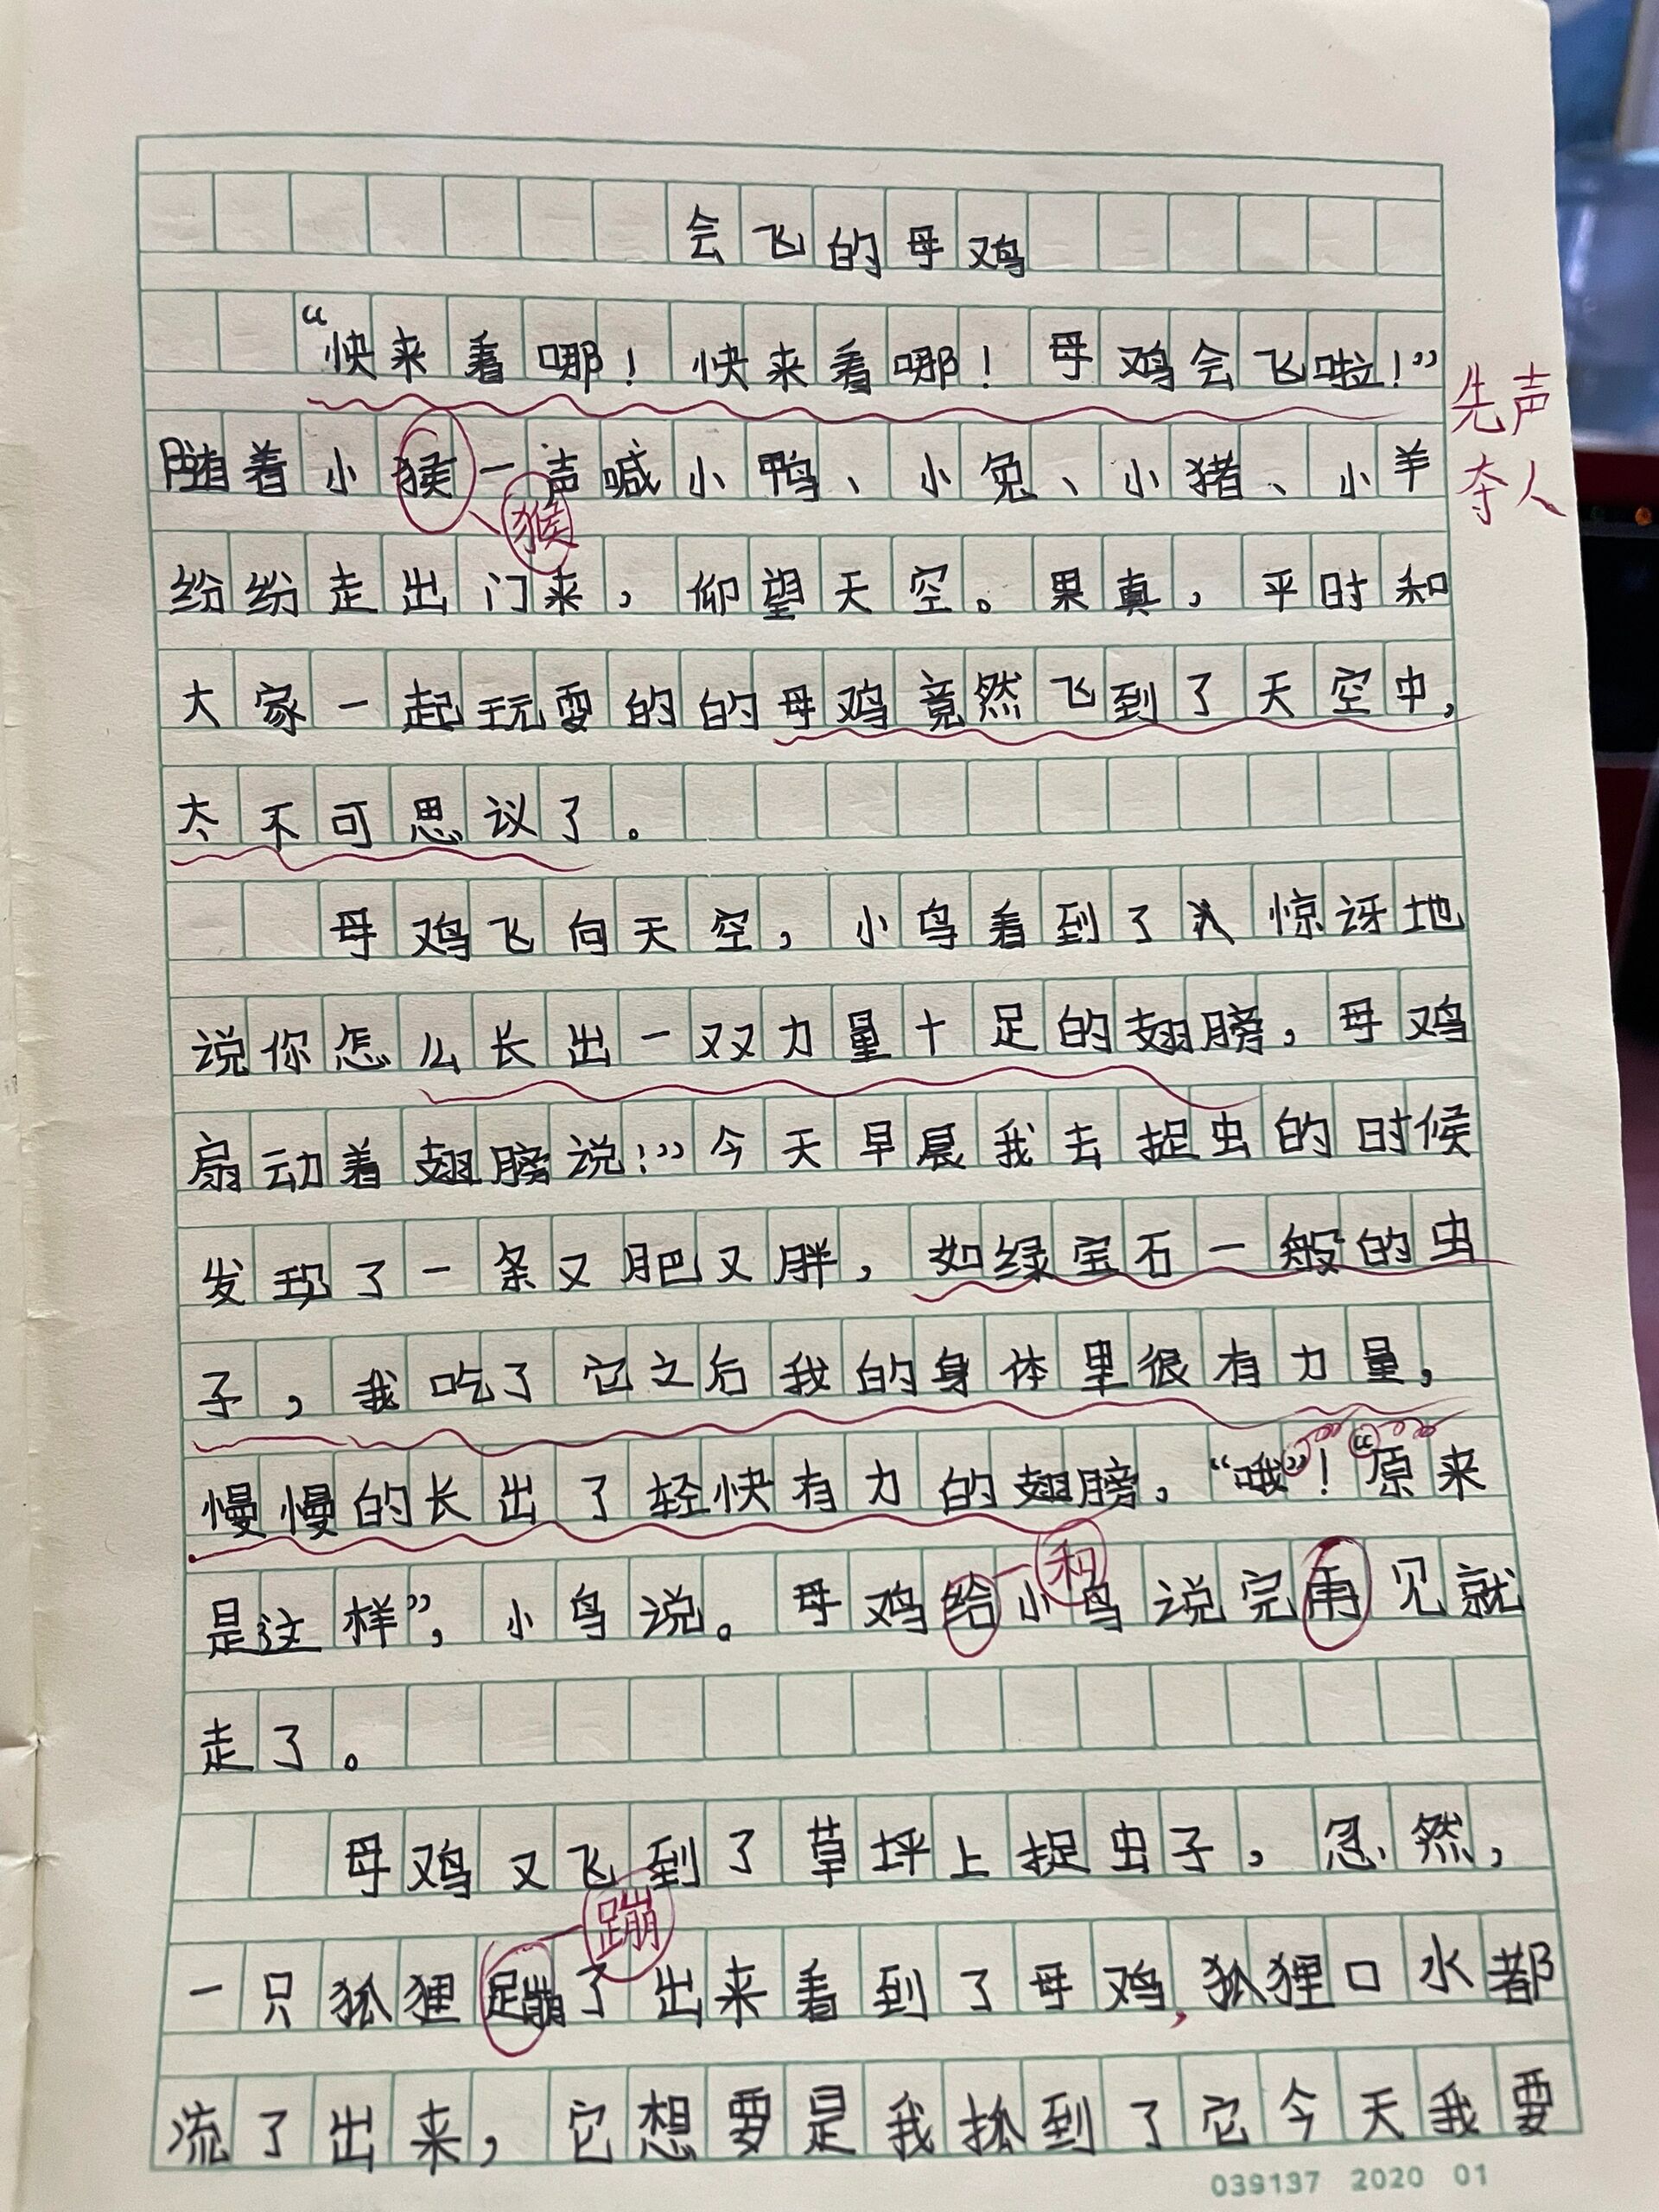 会飞的母鸡
“快来看哪！快来看哪！母鸡会飞啦！”
先声
夺人
随着小猴一声喊小鸭、小兔、小猪、小羊
猴
纷纷走出门来，仰望天空。果真，平时和
大家一起玩耍的的母鸡竟然飞到了天空中，
太不可思议了。
母鸡飞向天空，小鸟看到了惊讶地
说你怎么长出一双力量十足的翅膀，母鸡
扇动着翅膀说！”今天早晨我去捉虫的时候
发现了一条又肥又胖，如绿宝石一般的虫
子，我吃了它之后我的身体里很有力量，
慢慢的长出了轻快有力的翅膀，“哦”！“原来
和
是这样”，小鸟说。母鸡给小鸟说完再见就
走了。
母鸡又飞到了草坪上捉虫子，忽然，
蹦
一只狐狸蹦了出来看到了母鸡，狐狸口水都
流了出来，它想要是我抓到了它今天我要
039137 2020 01